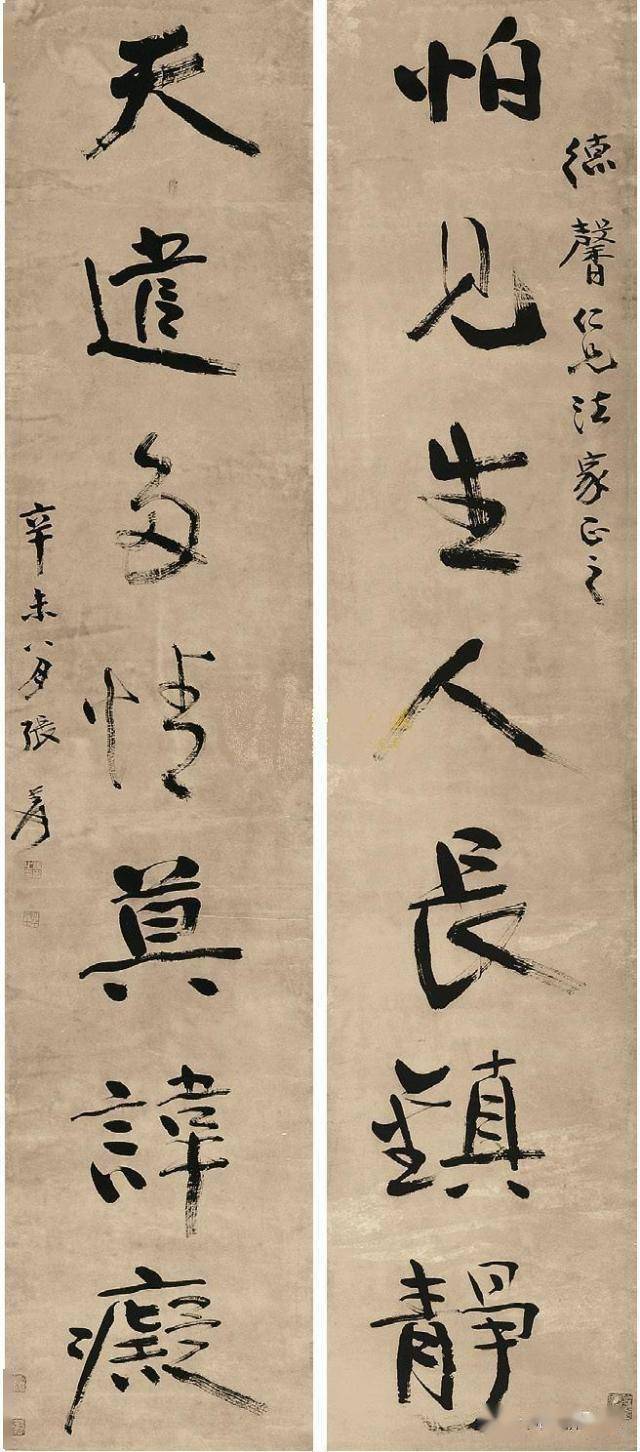 德馨仁兄法家正之
怕見生人長鎮靜
天遣多情莫諱癡
辛未八月張爰